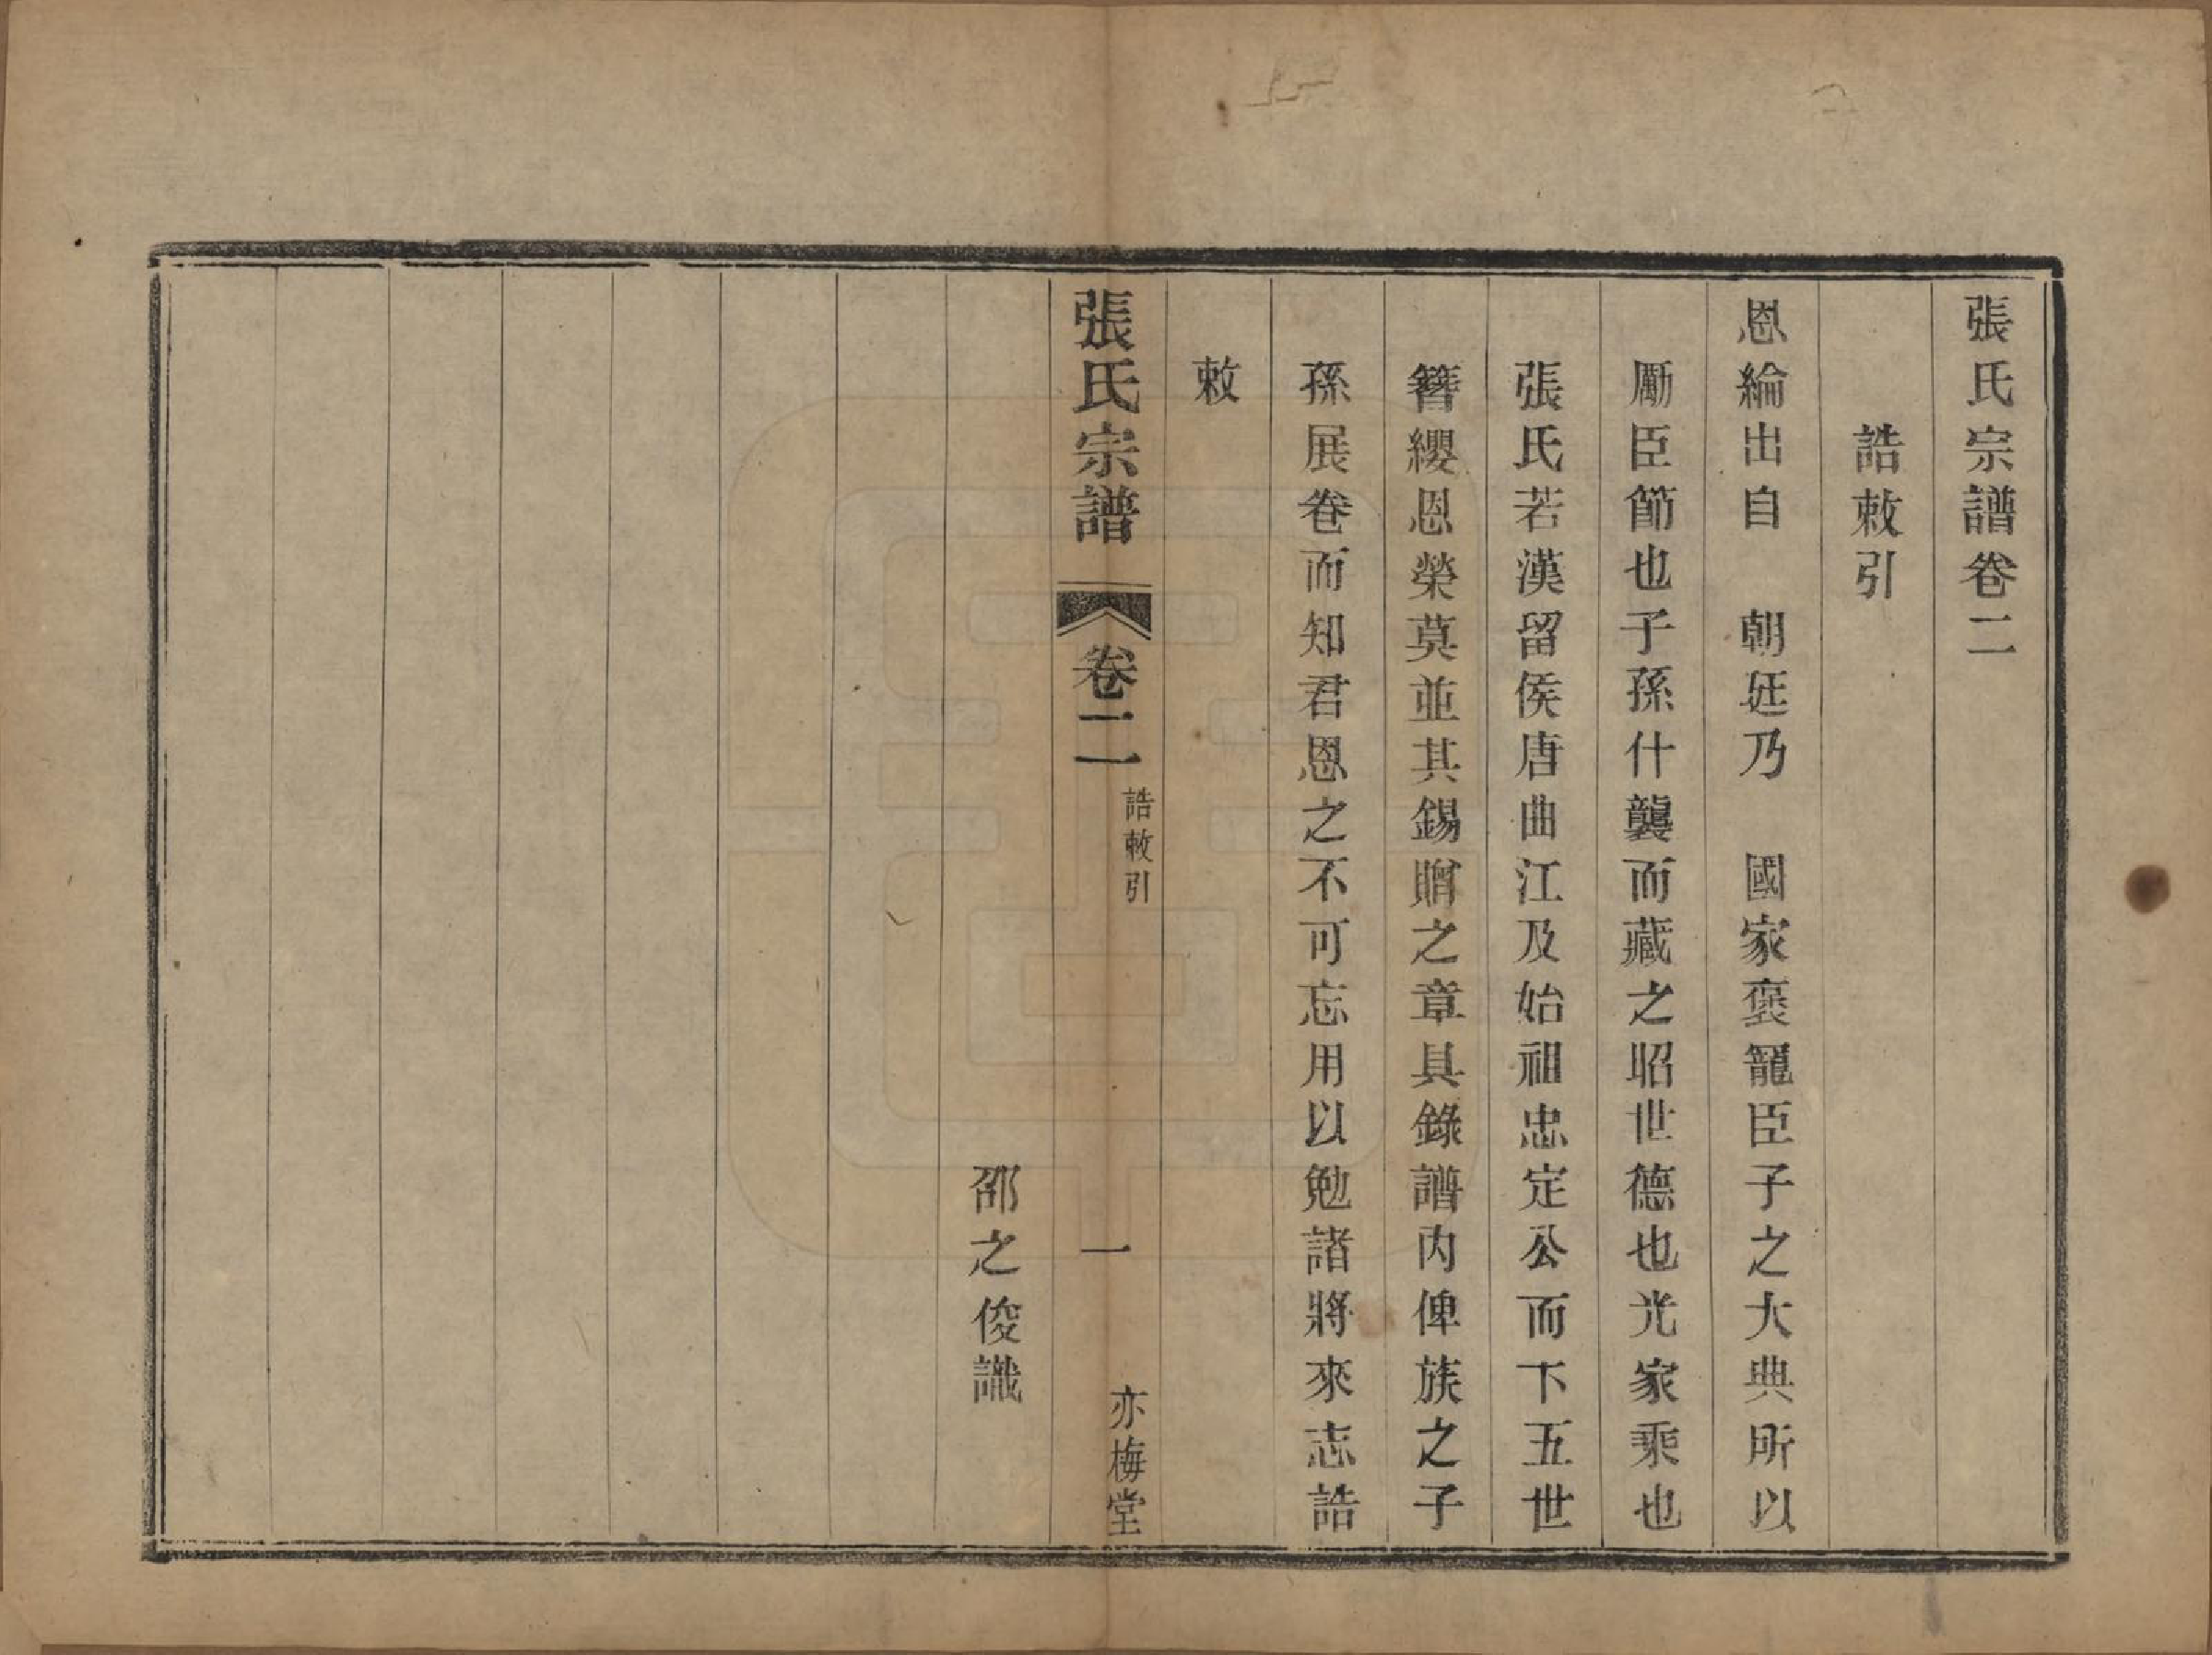 張氏宗譜卷二
誥敕引
恩綸出自 朝廷乃 國家褒寵臣子之大典所以
勵臣節也子孫什襲而藏之昭世德也光家乘也
張氏若漢留侯唐曲江及始祖忠定公而下五世
簪纓恩榮莫並其錫贈之章具錄譜内俾族之子
孫展卷而知君恩之不可忘用以勉諸將來志誥
敕
張氏宗譜 卷二 誥敕引 一 亦梅堂
邵之俊識